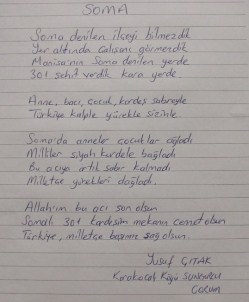 SOMA
Soma denilen ilçeyi bilmezdik
Yer altında çalışanı görmezdik
Manisa'nın Soma denilen yerde
301 şehit verdik kara yerde
Anne, bacı, çocuk, kardeş sabreyle
Türkiye kalple yürekle sizinle
Soma'da anneler çocuklar ağladı
Milliler siyah kurdele bağladı
Bu acıya artık sabır kalmadı
Milletçe yürekleri dağladı.
Allah'ım bu acı son olsun
Somalı 301 kardeşim mekanın cennet olsun
Türkiye, milletçe başımız sağ olsun.
Yusuf ÇITAK
Kırakocalı Köyü SUNGURLU
ÇORUM